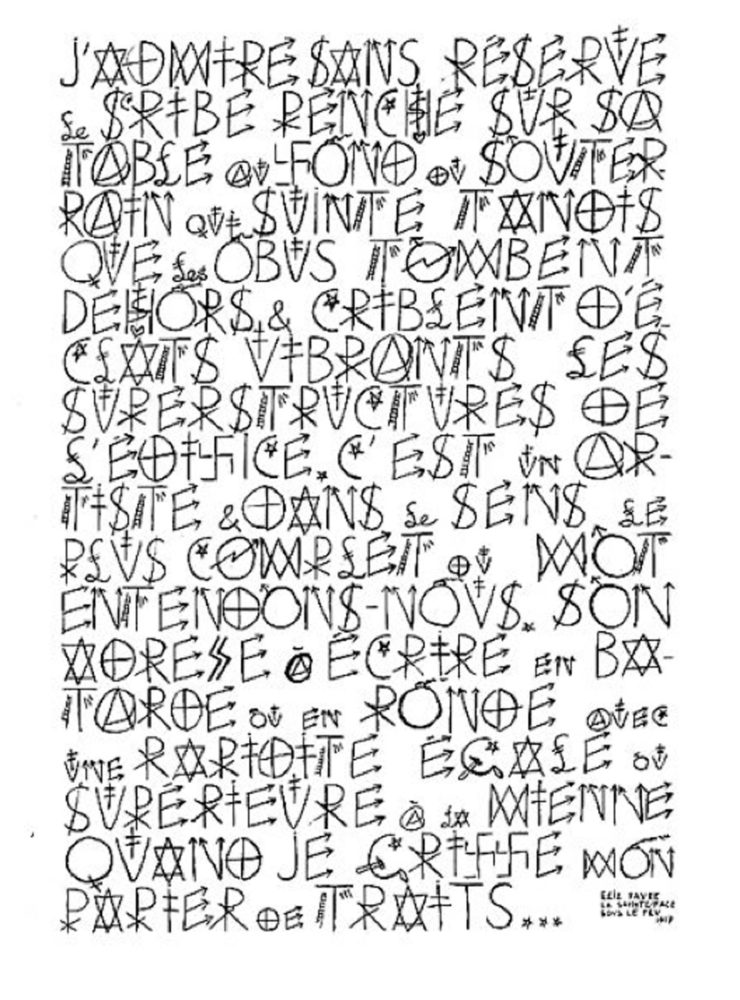 J'ADMIRE SANS RÉSERVE
le SCRIBE PENCHÉ SUR SA
TABLE AU FOND DU SOUTER
RAIN QUI SUINTE TANDIS
QUE les OBUS TOMBENT
DEHORS & CRIBLENT D'É
CLATS VIBRANTS LES
SUPERSTRUCTURES DE
L'ÉDIFICE. C'EST UN AR-
TISTE & DANS le SENS LE
PLUS COMPLET DU MOT
ENTENDONS-NOUS. SON
ADRESSE À ÉCRIRE EN BA-
TARDE OU EN RONDE AVEC
UNE RAPIDITÉ ÉGALE OU
SUPÉRIEURE À LA MIENNE
QUAND JE GRIFFE MON
PAPIER DE TRAITS...
LA SAINTE/FACE
SOUS LE FEU